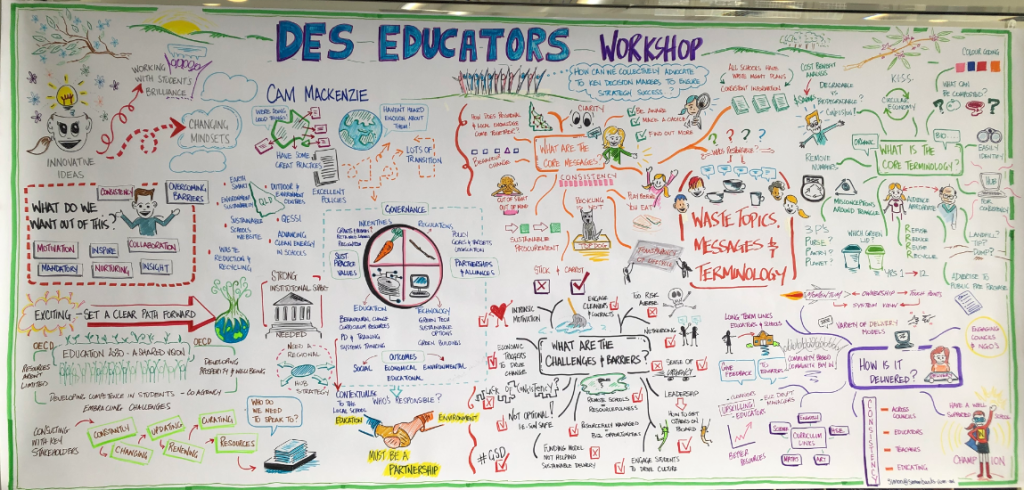 DES EDUCATORS WORKSHOP
WORKING
WITH STUDENTS
BRILLIANCE
INNOVATIVE
IDEAS
CHANGING
MINDSETS
CAM MACKENZIE
WORK DOING
GOOD THINGS!
HAVE SOME
GREAT PRACTICES
HAVEN'T MOVED
ENOUGH ABOUT
THEM!
LOTS OF
TRANSITION
EXCELLENT
POLICIES
EARTH
SMART
QLD
OUTDOOR &
ENVIRONMENT
CENTRES
QESSI
ADVANCING
CLEAN ENERGY
IN SCHOOLS
SUSTAINABLE
SCHOOLS WEBSITE
WASTE
REDUCTION &
RECYCLING
WHAT DO WE
WANT OUT OF THIS?
CONSISTENCY
OVERCOMING
BARRIERS
MOTIVATION
INSPIRE
COLLABORATION
MANDATORY
NURTURING
INSIGHT
EXCITING
SET A CLEAR PATH FORWARD
OECD
OECD
EDUCATION 2030 - A SHARED VISION
RESOURCES
AREN'T
LIMITED
DEVELOPING
PROSPERITY & WELL BEING
DEVELOPING COMPETENCE IN STUDENTS - CO AGENCY
EMBRACING CHALLENGES
CONSULTING
WITH KEY
STAKEHOLDERS
CONSTANTLY
CHANGING
UPDATING
RENEWING
CURATING
RESOURCES
WHO DO
WE NEED
TO SPEAK TO?
STRONG
INSTITUTIONAL SUPPORT
NEEDED
NEED A
REGIONAL
HUB
STRATEGY
GOVERNANCE
INCENTIVES
REGULATORY
POLICY
GOALS & TARGETS
LEGISLATION
PARTNERSHIPS
& ALLIANCES
SUST
PRACTICES
VALUES
EDUCATION
BEHAVIOURAL CHANGE
CURRICULUM RESOURCES
PD & TRAINING
SYSTEMS THINKING
TECHNOLOGY
GREEN TECH
SUSTAINABLE
OPTIONS
GREEN BUILDING
OUTCOMES
SOCIAL ECONOMICAL ENVIRONMENTAL
EDUCATIONAL
CONTEXTUALISE
TO THE
LOCAL SCHOOL
WHO'S RESPONSIBLE?
EDUCATION
ENVIRONMENT
MUST BE A
PARTNERSHIP
HOW CAN WE COLLECTIVELY ADVOCATE
TO KEY DECISION MAKERS TO ENSURE
STRATEGY SUCCESS?
COME TOGETHER?
CLARITY
BE AWARE
MAKE A CHOICE
FIND OUT MORE
WHAT ARE THE
CORE MESSAGES
BEHAVIOUR
CHANGE
CONSISTENCY
OUT OF SIGHT
OUT OF MIND
TOP DOG
SUSTAINABLE
PROCUREMENT
STICK + CARROT
ALL SCHOOLS HAVE
WASTE MGMT PLANS
CONSISTENT INFORMATION
WHO'S RESPONSIBLE?
WASTE TOPICS,
MESSAGES &
TERMINOLOGY
COST BENEFIT
ANALYSIS
DEGRADABLE
BIODEGRADABLE?
CONFUSING!
KISS
CIRCULAR
ECONOMY
COLOUR CODING
WHAT CAN
BE COMPOSTED?
EASILY
IDENTIFY
ORGANIC
BIO
WHAT IS THE
CORE TERMINOLOGY?
REMOVE
NUMBERS
MISCONCEPTIONS
AROUND TRIANGLE
AUDIENCE
APPROPRIATE
FOR CONSISTENCY
3 P'S
PURSE?
PARTY?
PLANET?
WHICH GREEN
LID?
REFUSE
REDUCE
REUSE
RECYCLE
YRS 1 → 12
LANDFILL?
TIP?
DUMP?
INTRINSIC
MOTIVATION
ENGAGE
CLEANERS
& GENERALS
TOO RISK
AVERSE
NETWORKING
WHAT ARE THE
CHALLENGES & BARRIERS?
ECONOMIC
TRIGGERS
TO DRIVE
CHANGE
LACK OF CONSISTENCY
NOT OPTIONAL!
I.E. SUN SAFE
#GSD
REMOTE SCHOOLS
RESOURCEFULNESS
REGIONALLY MANAGED
BIZ OPPORTUNITIES
FUNDING MODEL
NOT HELPING
SUSTAINABLE DELIVERY
ENGAGE STUDENTS
TO DRIVE CULTURE
SENSE OF
LEADERSHIP
HOW TO GET
OTHERS ON
BOARD
OWNERSHIP
TOUCH POINTS
SYSTEM VIEW
LONG TERM LINKS
EDUCATORS & SCHOOLS
VARIETY OF DELIVERY
MODELS
GIVE
FEEDBACK
COMMUNITY BASED
COMMUNITY BUY IN
HOW IS IT
DELIVERED?
ENGAGING
COUNCILS
& NGO'S
UPSKILLING
EDUCATORS
BETTER
RESOURCES
ENGLISH
SCIENCE
CURRICULUM
LINKS
ART
CONSISTENCY
ACROSS
COUNCILS
EDUCATORS
TEACHERS
EDUCATING
HAVE A WELL
SUPPORTED
SCHOOL
CHAMPION